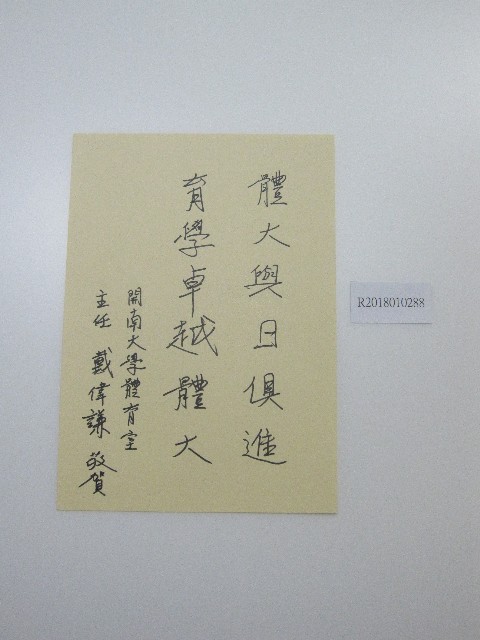 體大與日俱進
育學卓越體大
開南大學體育室
主任 戴偉謙 敬賀
R2018010288